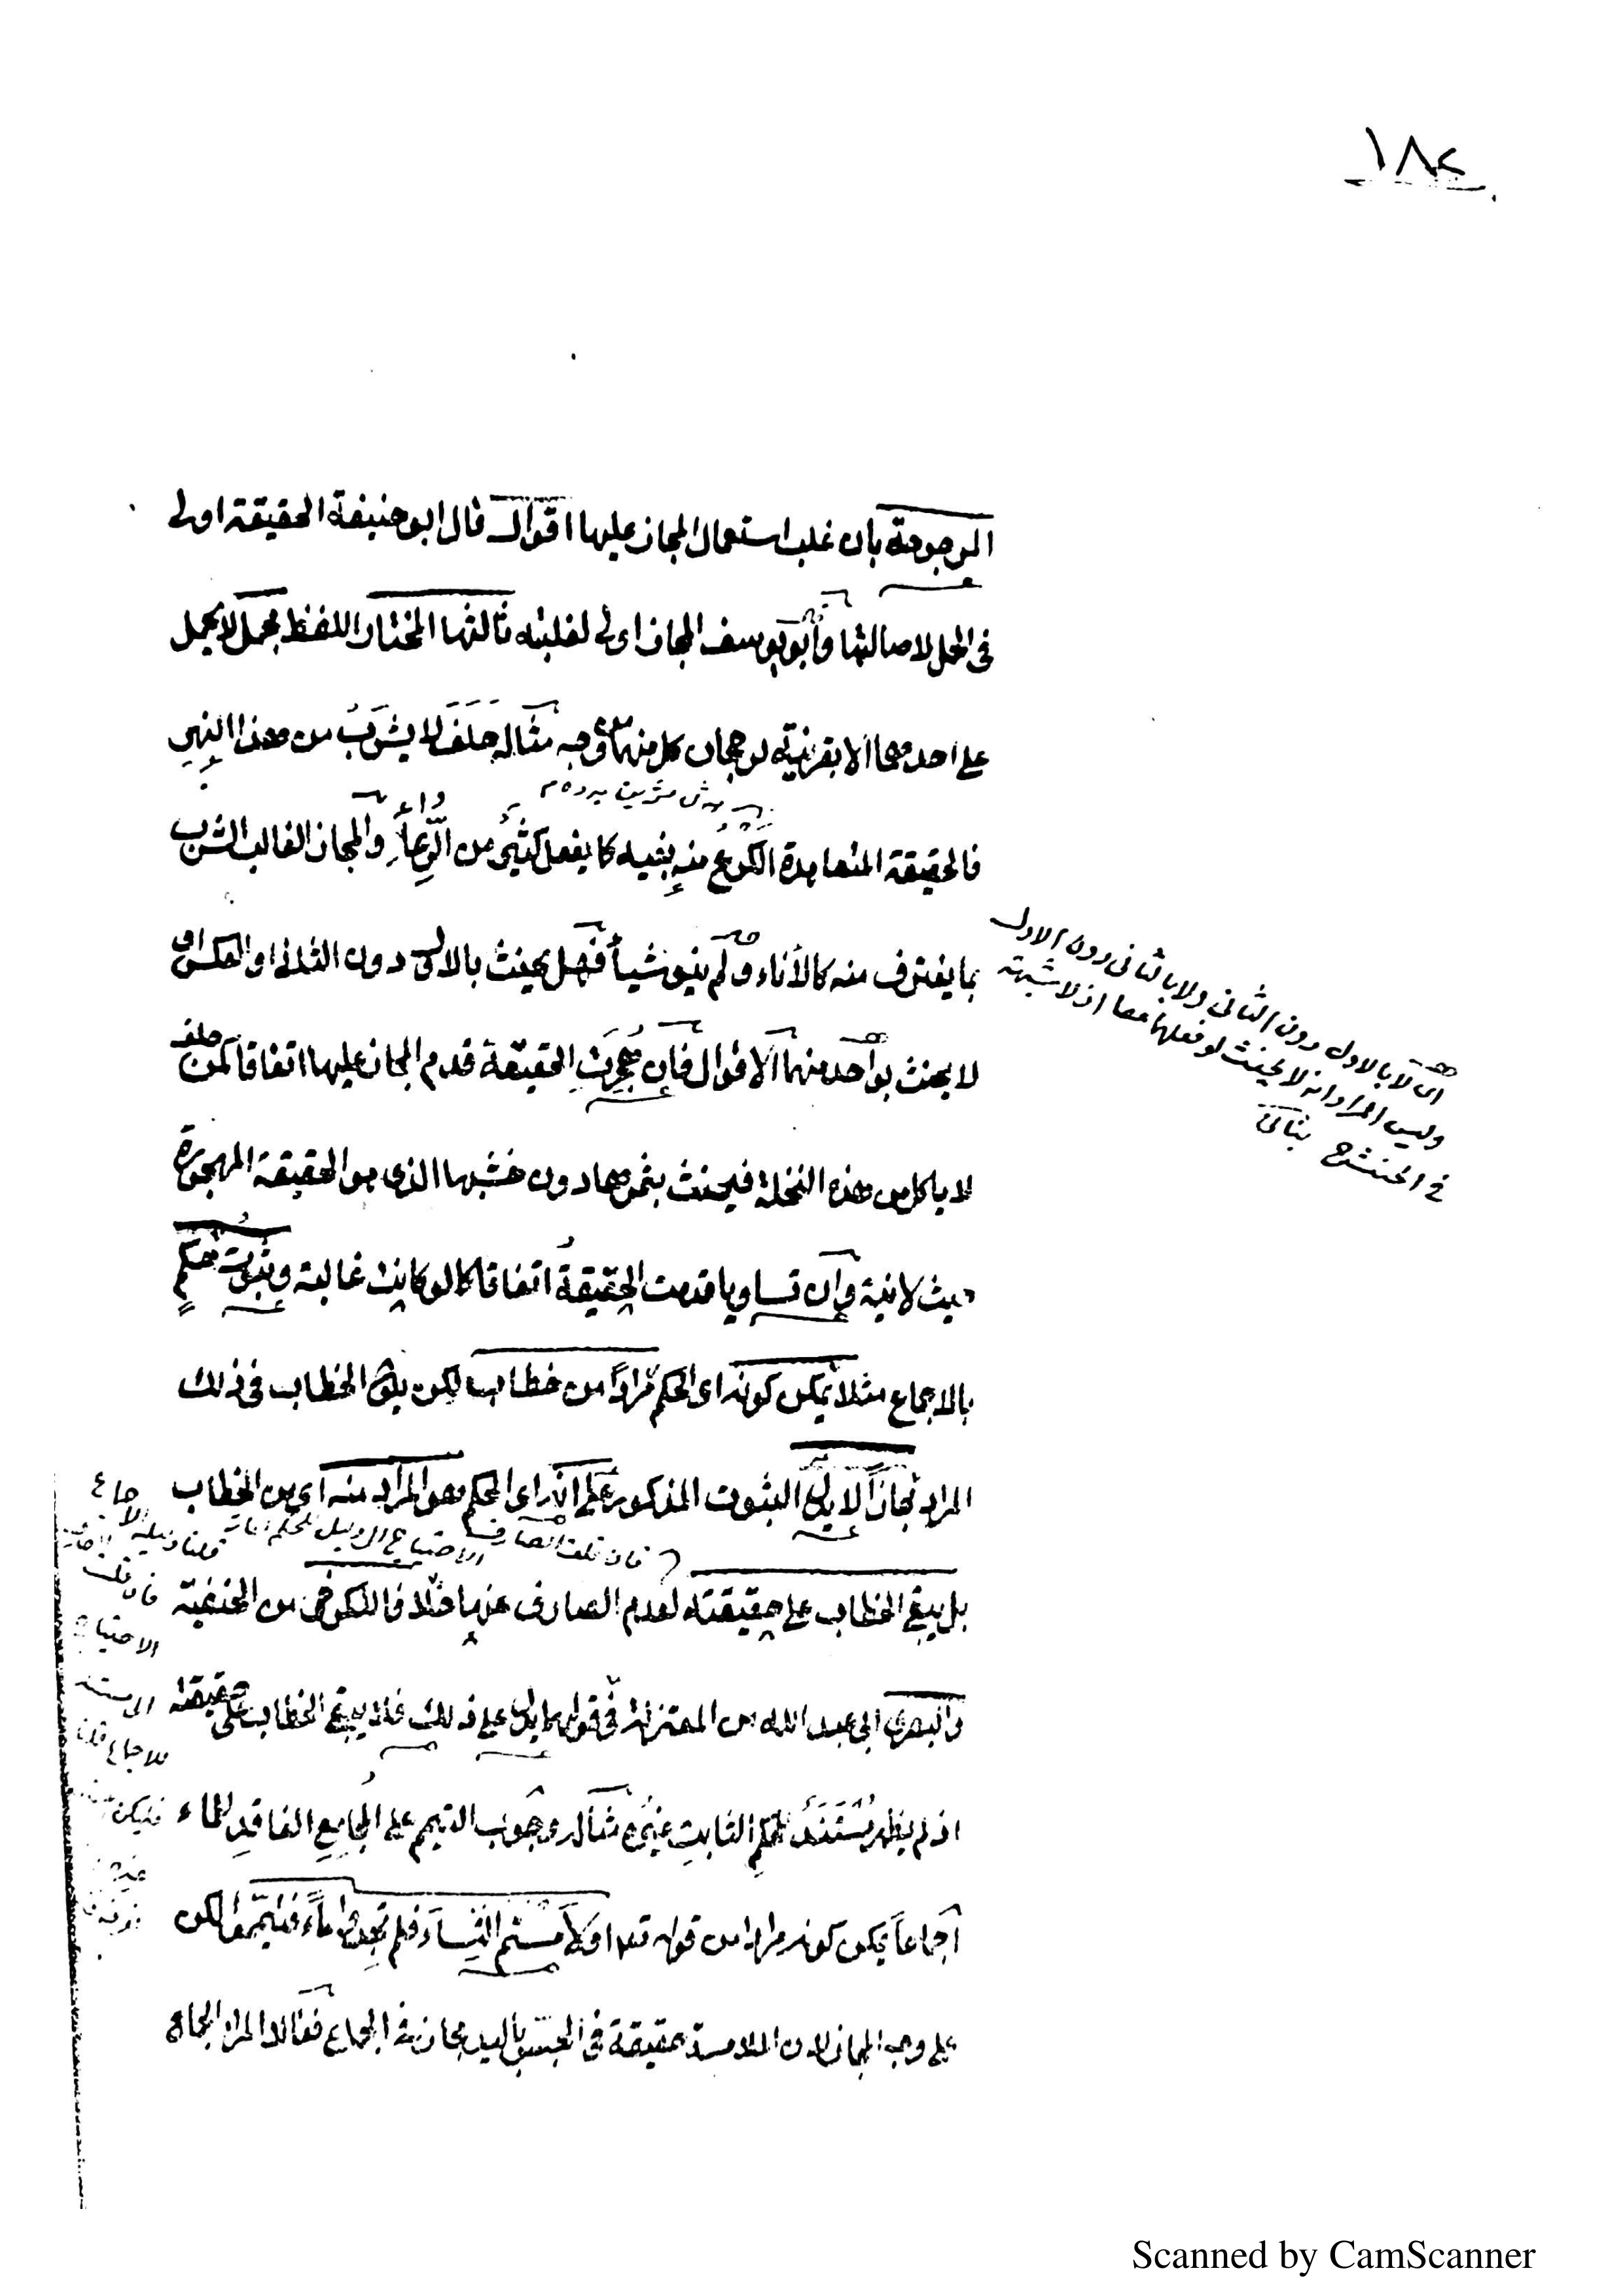 ١٨٢
المرجوحة بان غلب استعمال المجاز عليها اقوال قال ابو حنيفة الحقيقة اولى
فى الحمل لاصالتها وابو يوسف المجاز اولى لغلبته ثالثها المختار اللفظ مجمل لا يحمل
على احدهما الا بقرينة لرجحان كل منهما من وجه مثاله حلف لا يشرب من هذا النهر
فالحقيقة المتعاهدة الكرع منه بفيه كما يفعل كثير من الرعاء والمجاز الغالب الشرب
بما يغترف منه كالاناء ولم ينو شيأ فهل يحنث بالاول دون الثانى او العكس او
لا يحنث بواحد منهما الاقوال فان هجرت الحقيقة قدم المجاز عليها اتفاقا كمن حلف
لا ياكل من هذه النخلة فيحنث بثمرها دون خشبها الذى هو الحقيقة المهجورة
حيث لا نية وان تساويا قدمت الحقيقة اتفاقا كما لو كانت غالبة وثبوت حكم
بالاجماع مثلا يمكن كونه اى الحكم مرادا من خطاب لكن يكون الخطاب فى ذلك
المراد مجازا لا يدل الثبوت المذكور على انه اى الحكم هو المراد منه اى من الخطاب
بل يبقى الخطاب على حقيقته لعدم الصارف عنها خلافا للكرخى من الحنفية
والبصرى ابى عبد الله من المعتزلة فى قولهما يدل على ذلك فلا يبقى الخطاب على حقيقته
اذ لم يظهر مستند للحكم الثابت غيره مثاله وجوب التيمم على المجامع الفاقد للماء
اجماعا يمكن كونه مرادا من قوله تعالى او لامستم النساء فلم تجدوا ماء فتيمموا لكن
على وجه المجاز لان الملامسة حقيقة فى الجس باليد مجاز فى الجماع فقالا المراد الجماع
اى لا بالاول دون الثانى ولا بالثانى دون الاول
وليس المراد انه لا يحنث لو فعلهما معا اذ لا شبهة
فى الحنث ح بنانى
فان قلت
الاحتياج
للاجماع قلنا
Scanned by CamScanner